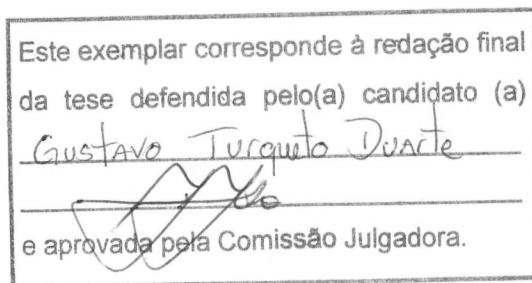 Este exemplar corresponde à redação final
da tese defendida pelo(a) candidato (a)
Gustavo Turqueto Duarte
e aprovada pela Comissão Julgadora.